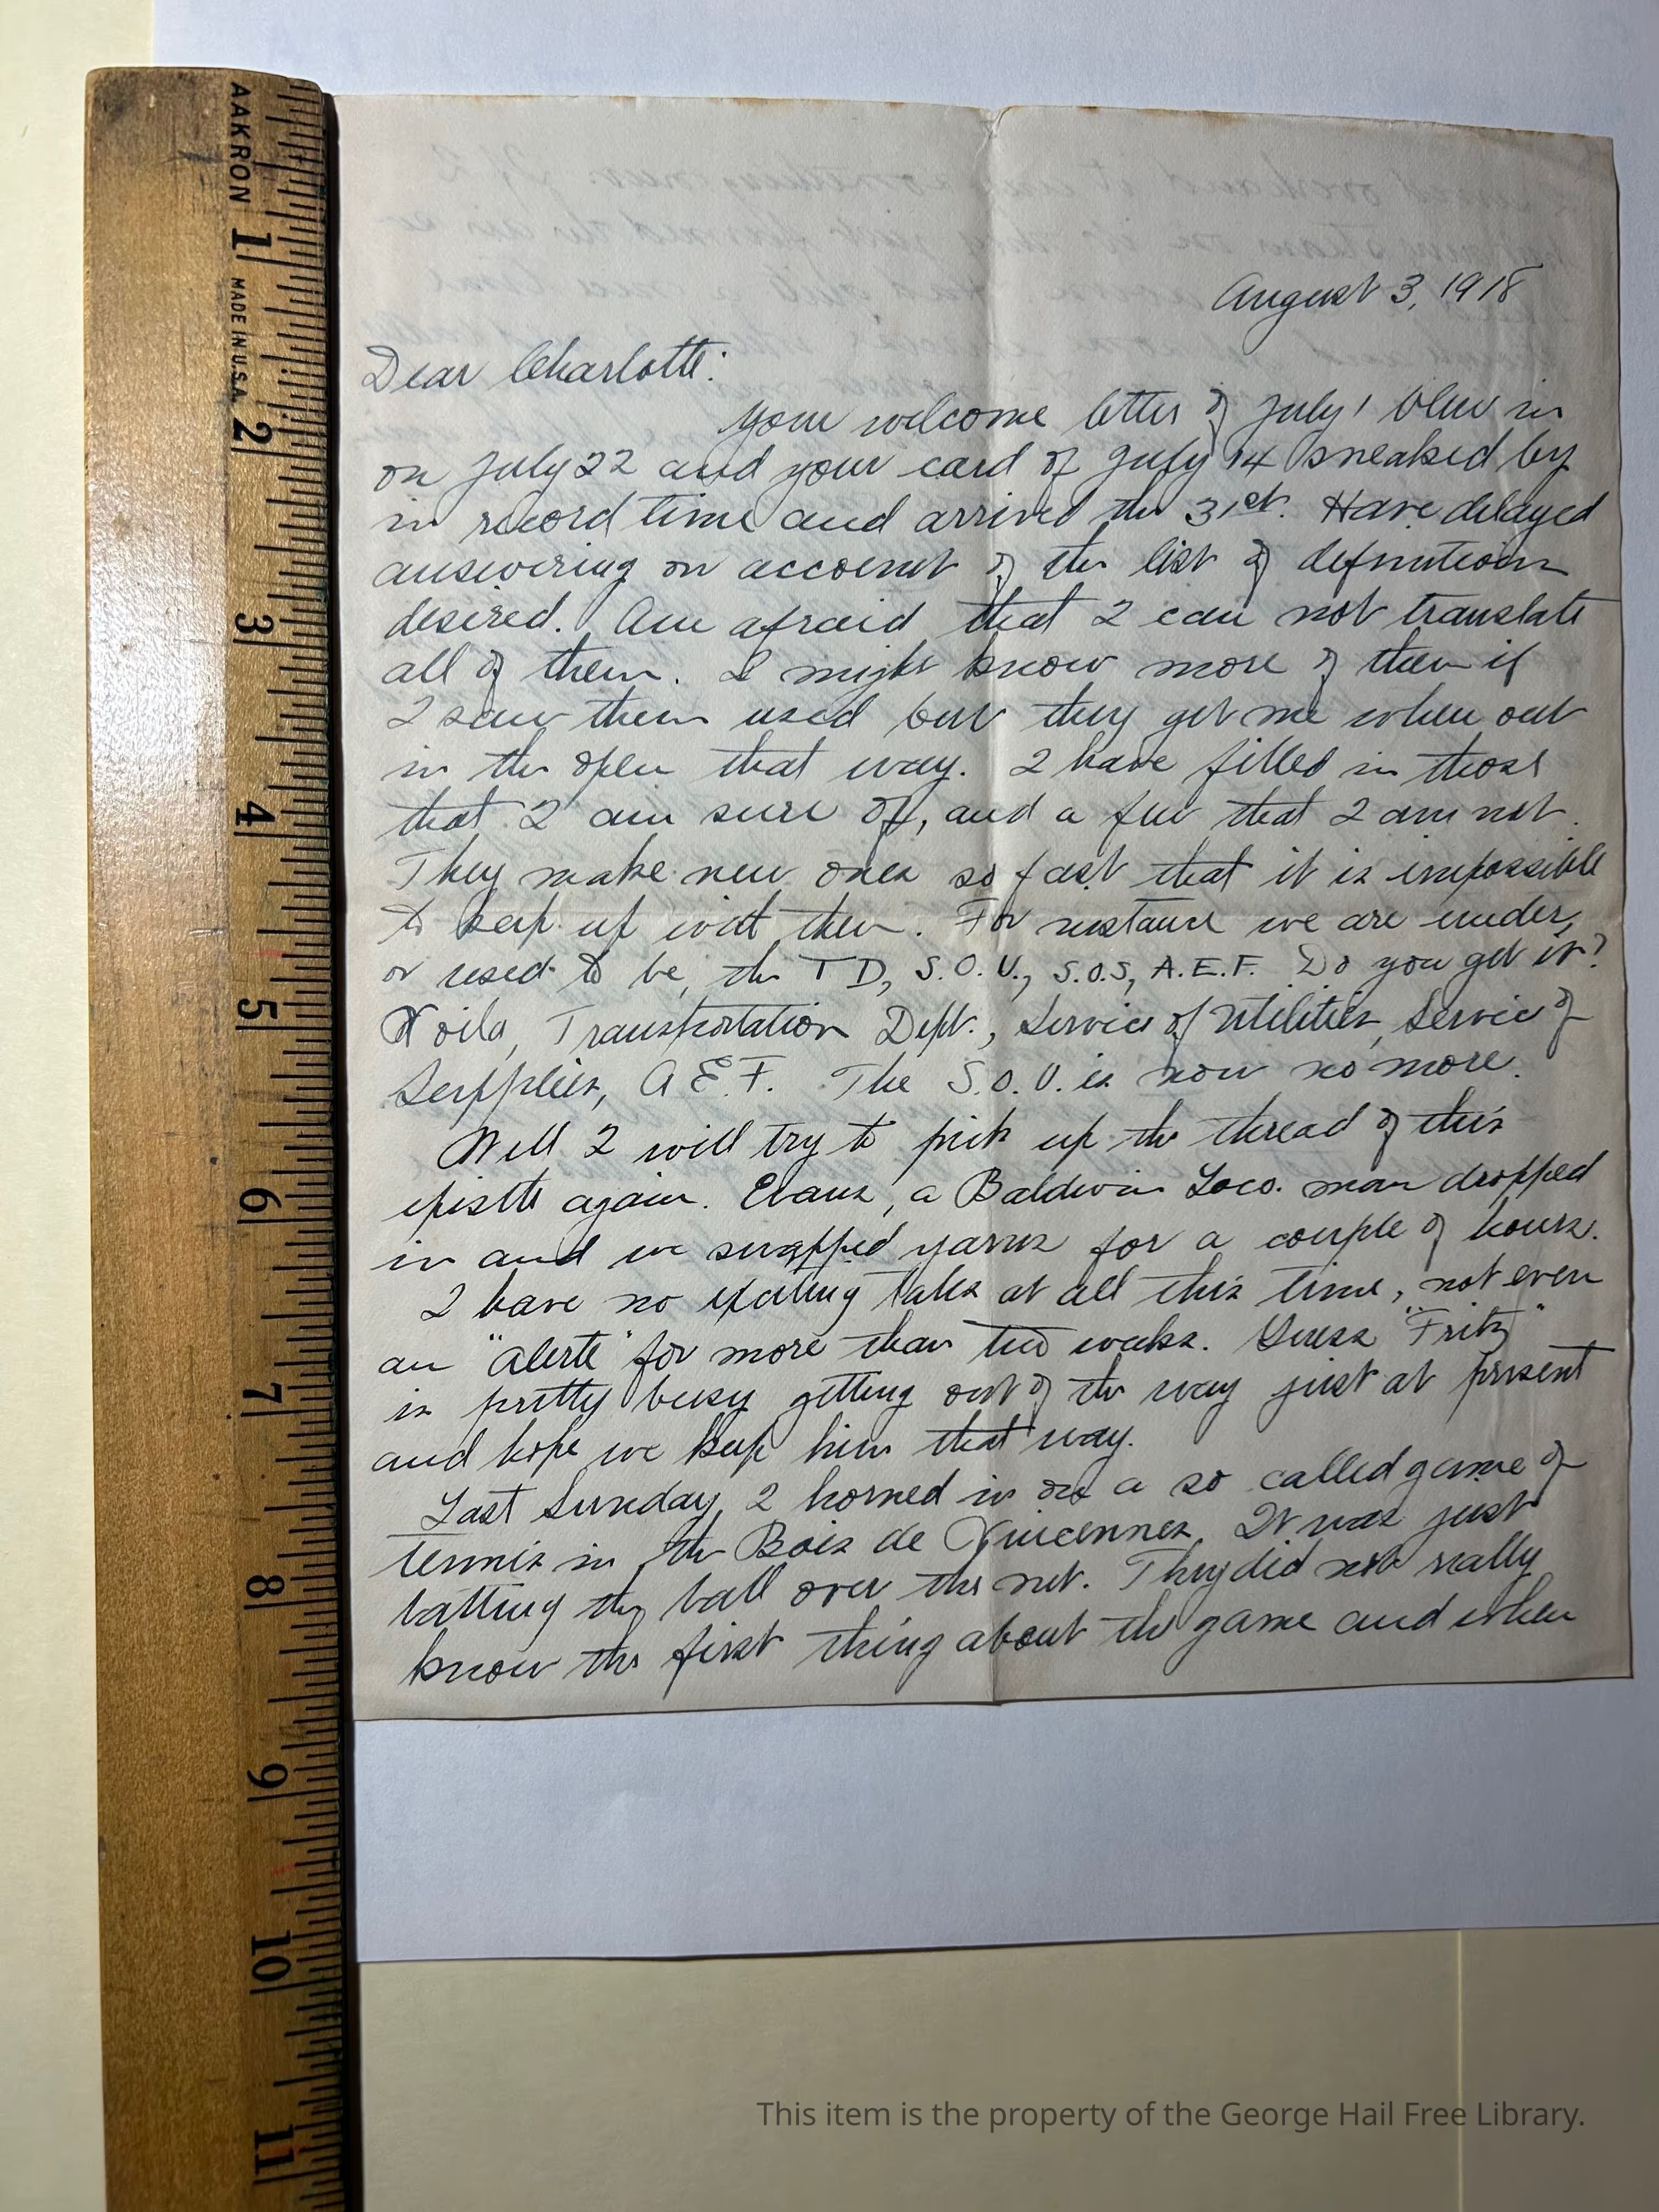 AAKRON
MADE IN U.S.A.
1
2
3
4
5
6
7
8
9
10
11
August 3, 1918
Dear Charlotte:
Your welcome letter of July 1 blew in
on July 22 and your card of July 14 sneaked by
in record time and arrived the 31st. Have delayed
answering on account of the list of definitions
desired. Am afraid that I can not translate
all of them. I might know more of them if
I saw them used but they get me when out
in the open that way. I have filled in those
that I am sure of, and a few that I am not.
They make new ones so fast that it is impossible
to keep up with them. For instance we are under,
or used to be, the T D, S.O.U., S.O.S, A.E.F. Do you get it?
Voila, Transportation Dept., Service of Utilities, Service of
Supplies, A E.F. The S.O.U. is now no more.
Well I will try to pick up the thread of this
epistle again. Evans, a Baldwin Loco. man dropped
in and we swapped yarns for a couple of hours.
I have no exciting tales at all this time, not even
an "alerte" for more than two weeks. Guess "Fritz"
is pretty busy getting out of the way just at present
and hope we keep him that way.
Last Sunday, I horned in on a so called game of
tennis in the Bois de Vincennes. It was just
batting the ball over the net. They did not really
know the first thing about the game and when
This item is the property of the George Hail Free Library.